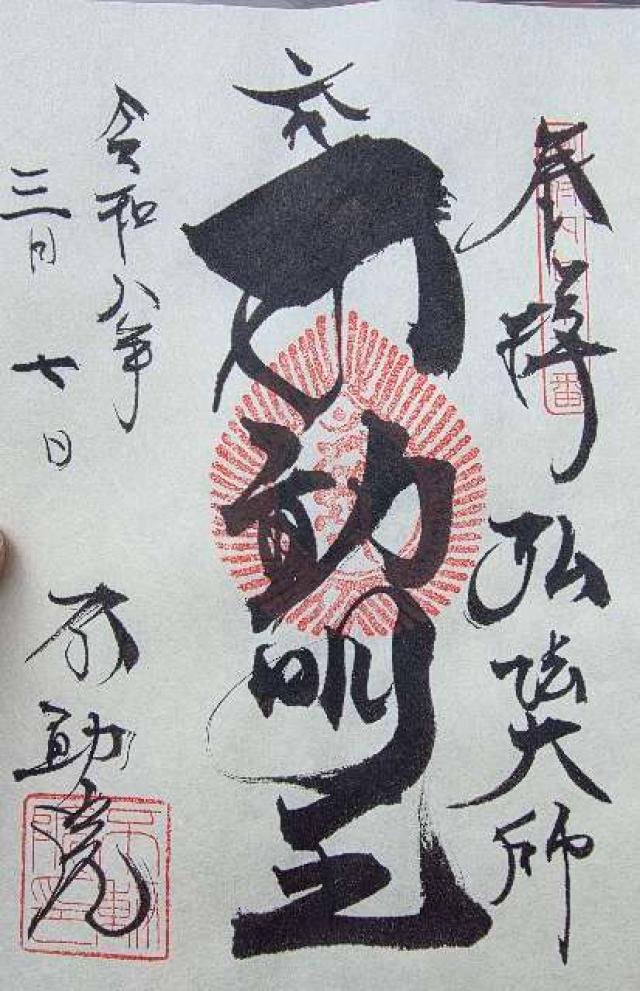 奉拝 弘法大師
不動明王
令和八年
三月七日
不動院